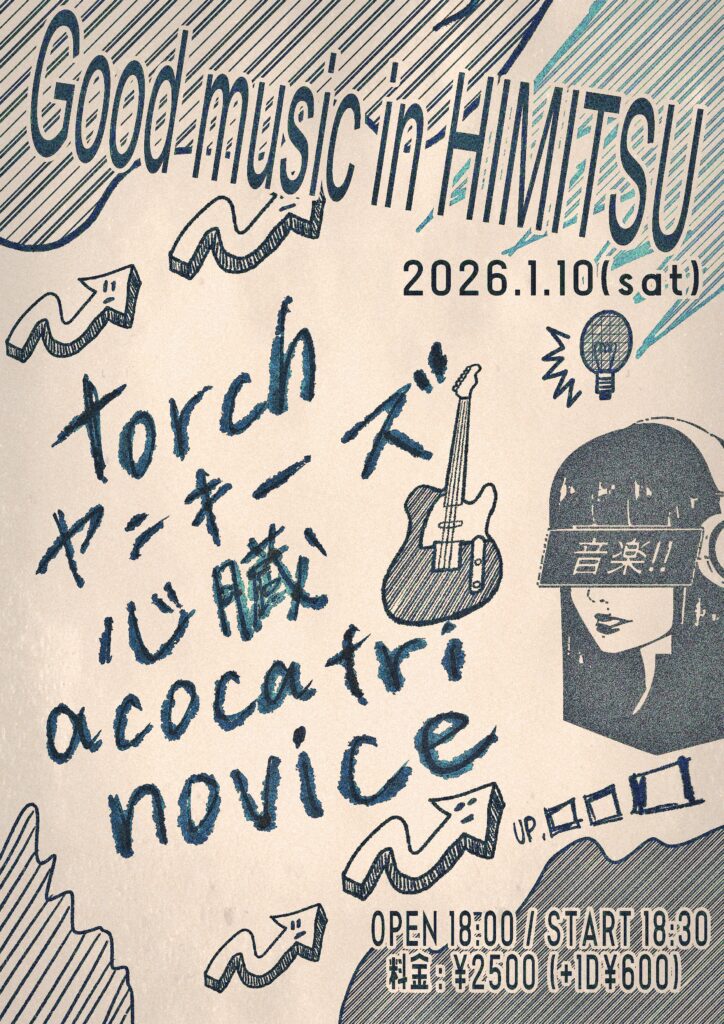 Good music in HIMITSU
2026.1.10(sat)
torch
ヤンキーズ
心臓
acocatri
novice
音楽!!
UP.
OPEN 18:00 / START 18:30
料金 : ¥2500 (+1D¥600)